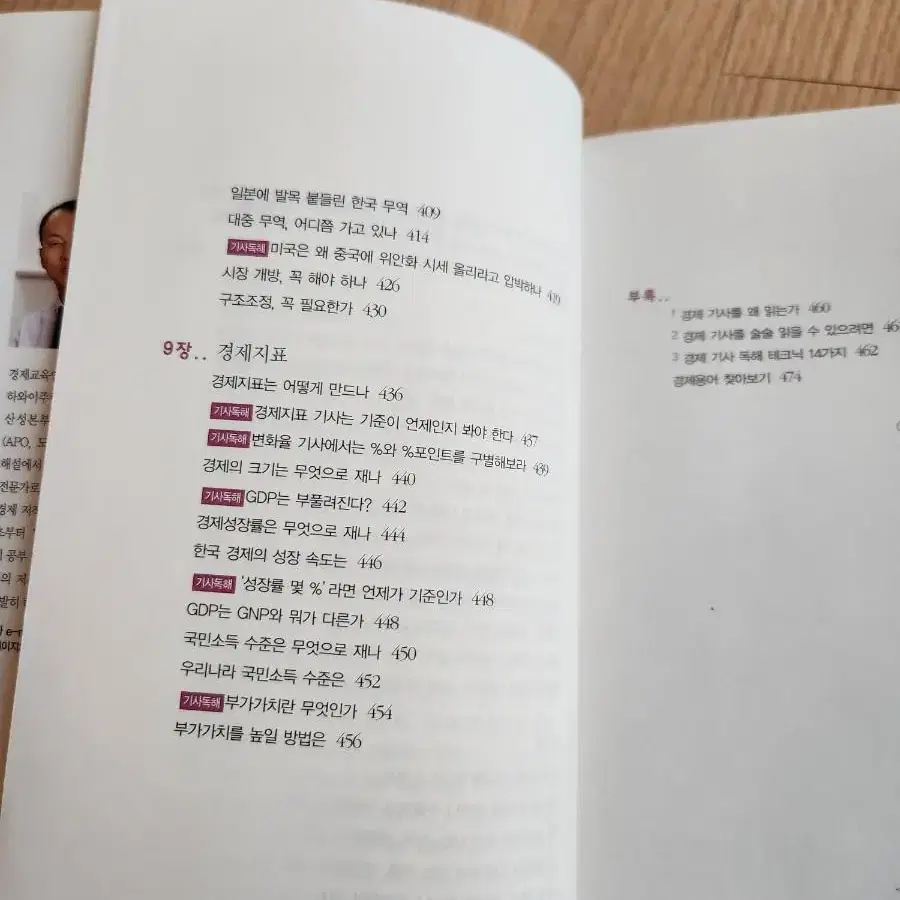 경제교육
하와이주
산성본부
(APO, 도
해설에서
전문가로
경제 저
초부터
공부
의 저
발히
일본에 발목 붙들린 한국 무역 409
대중 무역, 어디쯤 가고 있나 414
기사독해 미국은 왜 중국에 위안화 시세 올리라고 압박하나 419
시장 개방, 꼭 해야 하나 426
구조조정, 꼭 필요한가 430
9장.. 경제지표
경제지표는 어떻게 만드나 436
기사독해 경제지표 기사는 기준이 언제인지 봐야 한다 437
기사독해 변화율 기사에서는 %와 %포인트를 구별해보라 439
경제의 크기는 무엇으로 재나 440
기사독해 GDP는 부풀려진다? 442
경제성장률은 무엇으로 재나 444
한국 경제의 성장 속도는 446
기사독해 '성장률 몇 %'라면 언제가 기준인가 448
GDP는 GNP와 뭐가 다른가 448
국민소득 수준은 무엇으로 재나 450
우리나라 국민소득 수준은 452
기사독해 부가가치란 무엇인가 454
부가가치를 높일 방법은 456
부록..
1 경제 기사를 왜 읽는가 460
2 경제 기사를 술술 읽을 수 있으려면
3 경제 기사 독해 테크닉 14가지 462
경제용어 찾아보기 474